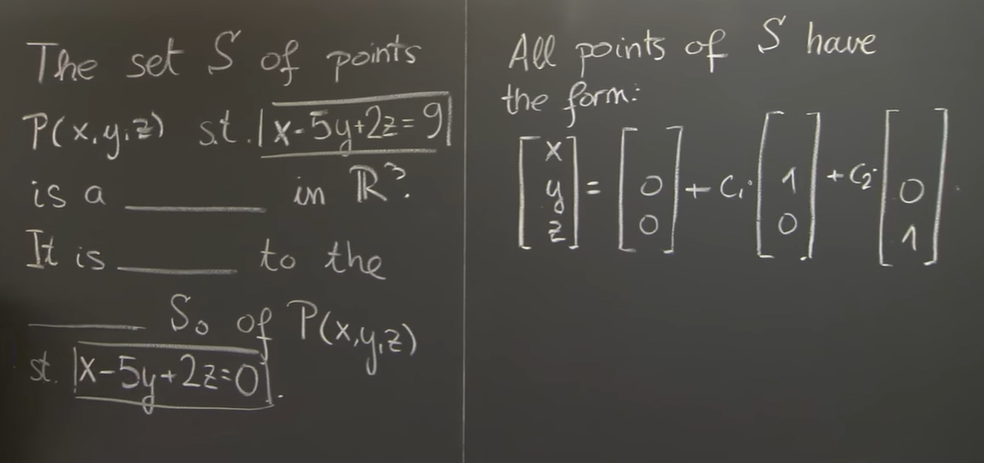 The set S of points
P(x,y,z) s.t. x-5y+2z=9
is a ______ in ℝ³.
It is ______ to the
______ S₀ of P(x,y,z)
st. x-5y+2z=0.
All points of S have
the form:
[x y z] = [  0 0] + C₁·[  1 0] + C₂·[  0 1].